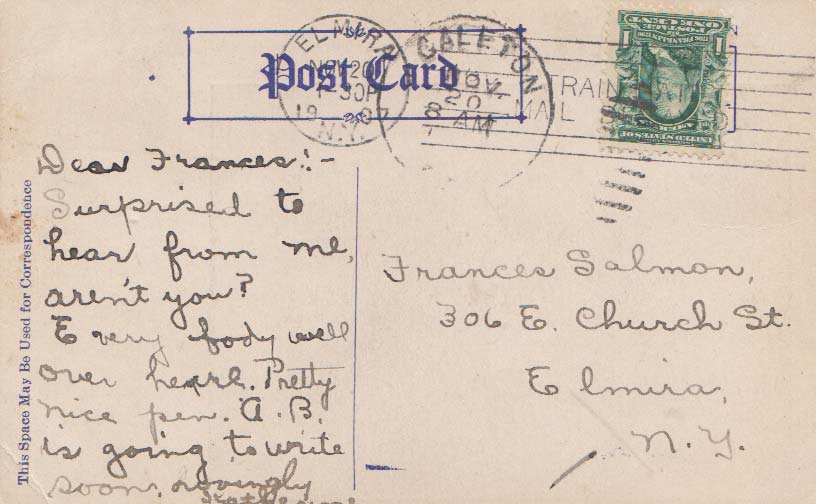 ELMIRA
NOV 20
1-30P
1907
N.Y.
GALETON
NOV.
20
8 AM
TRAIN LATE
MAIL
Post Card
POSTAGE
ONE CENT
1
1
Dear Frances:-
Surprised to
hear from me,
aren't you?
Every body well
over here. Pretty
nice pen. A.B.
is going to write
soon. Lovingly
This Space May Be Used for Correspondence
Frances Salmon,
306 E. Church St.
Elmira,
N.Y.